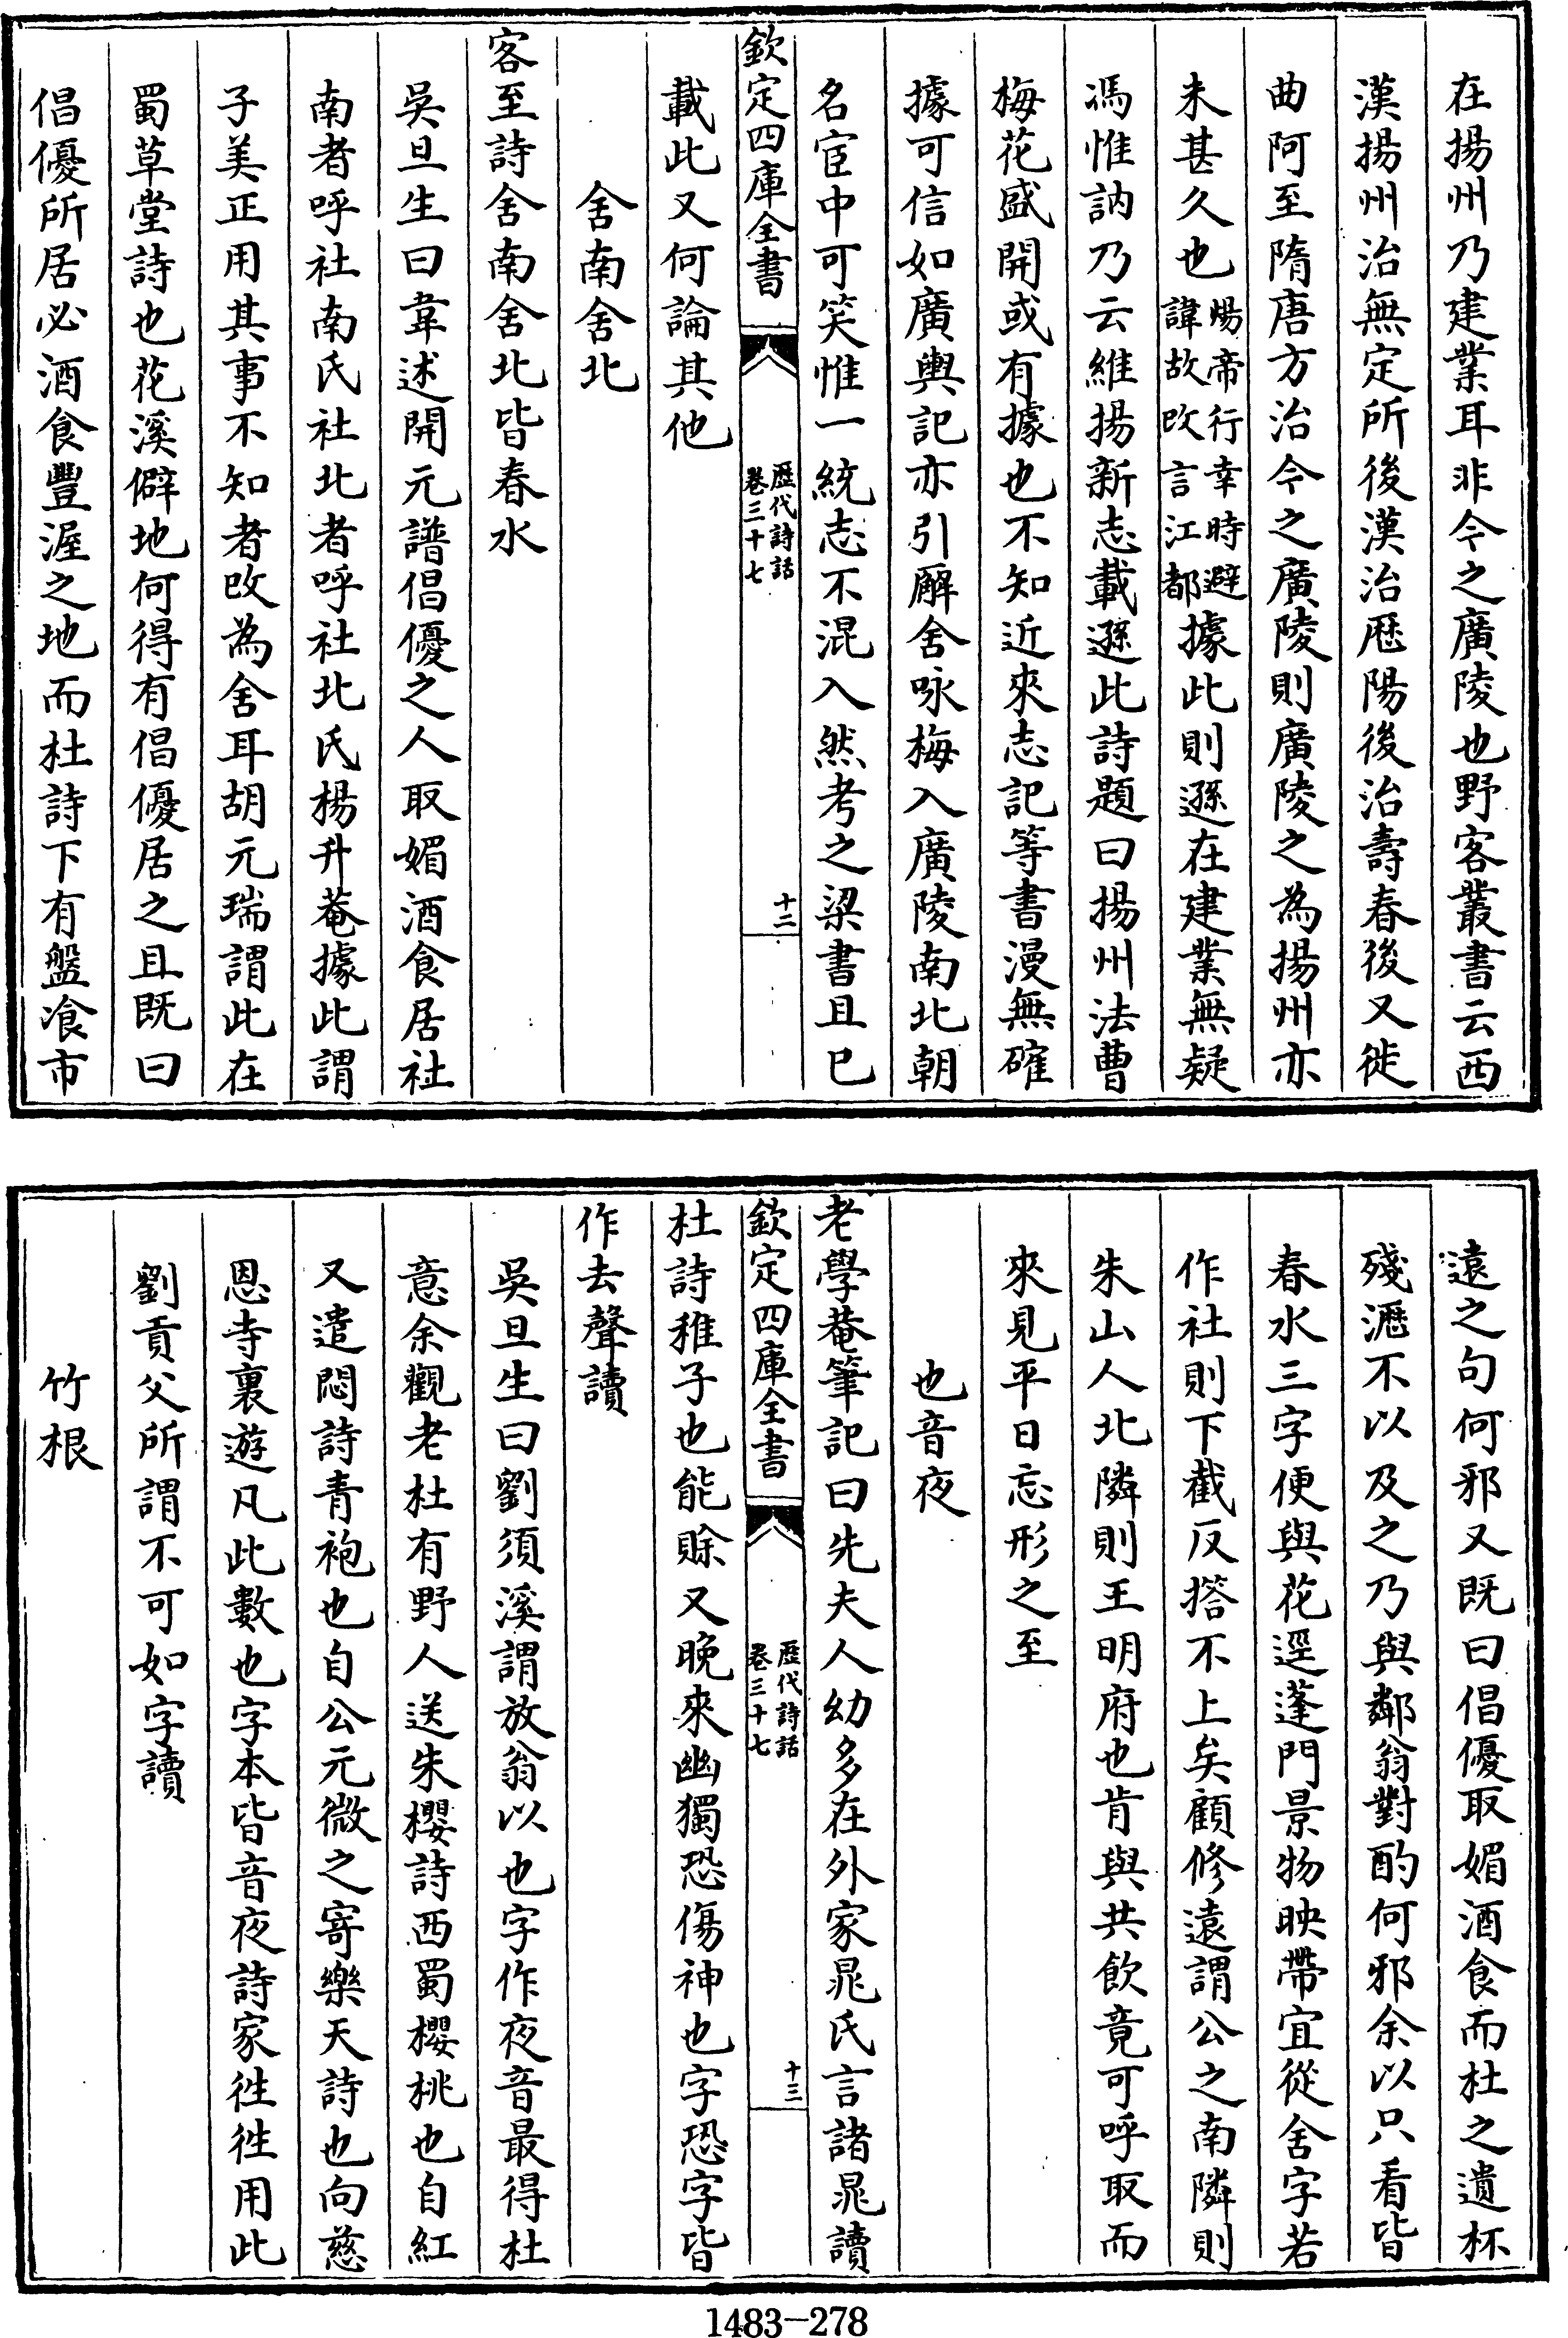 在揚州乃建業耳非今之廣陵也野客叢書云西
漢揚州治無定所後漢治厯陽後治壽春後又徙
曲阿至隋唐方治今之廣陵則廣陵之為揚州亦
未甚久也煬帝行幸時避諱故改言江都據此則遜在建業無疑
馮惟訥乃云維揚新志載遜此詩題曰揚州法曹
梅花盛開或有據也不知近來志記等書漫無確
據可信如廣輿記亦引廨舍咏梅入廣陵南北朝
名宦中可笑惟一統志不混入然考之梁書且已
欽定四庫全書
歴代詩話
卷三十七
十二
載此又何論其他
舍南舍北
客至詩舍南舍北皆春水
吳旦生曰韋述開元譜倡優之人取媚酒食居社
南者呼社南氏社北者呼社北氏楊升菴據此謂
子美正用其事不知者改為舍耳胡元瑞謂此在
蜀草堂詩也花溪僻地何得有倡優居之且既曰
倡優所居必酒食豐渥之地而杜詩下有盤飡市
遠之句何邪又既曰倡優取媚酒食而杜之遺杯
殘瀝不以及之乃與鄰翁對酌何邪余以只看皆
春水三字便與花逕蓬門景物映帶宜從舍字若
作社則下截反撘不上矣顧修遠謂公之南隣則
朱山人北隣則王明府也肯與共飲竟可呼取而
來見平日忘形之至
也音夜
老學菴筆記曰先夫人幼多在外家晁氏言諸晁讀
欽定四庫全書
歴代詩話
卷三十七
十三
杜詩稚子也能賒又晚來幽獨恐傷神也字恐字皆
作去聲讀
吳旦生曰劉須溪謂放翁以也字作夜音最得杜
意余觀老杜有野人送朱櫻詩西蜀櫻桃也自紅
又遣悶詩青袍也自公元微之寄樂天詩也向慈
恩寺裏遊凡此數也字本皆音夜詩家徃徃用此
劉貢父所謂不可如字讀
竹根
1483-278